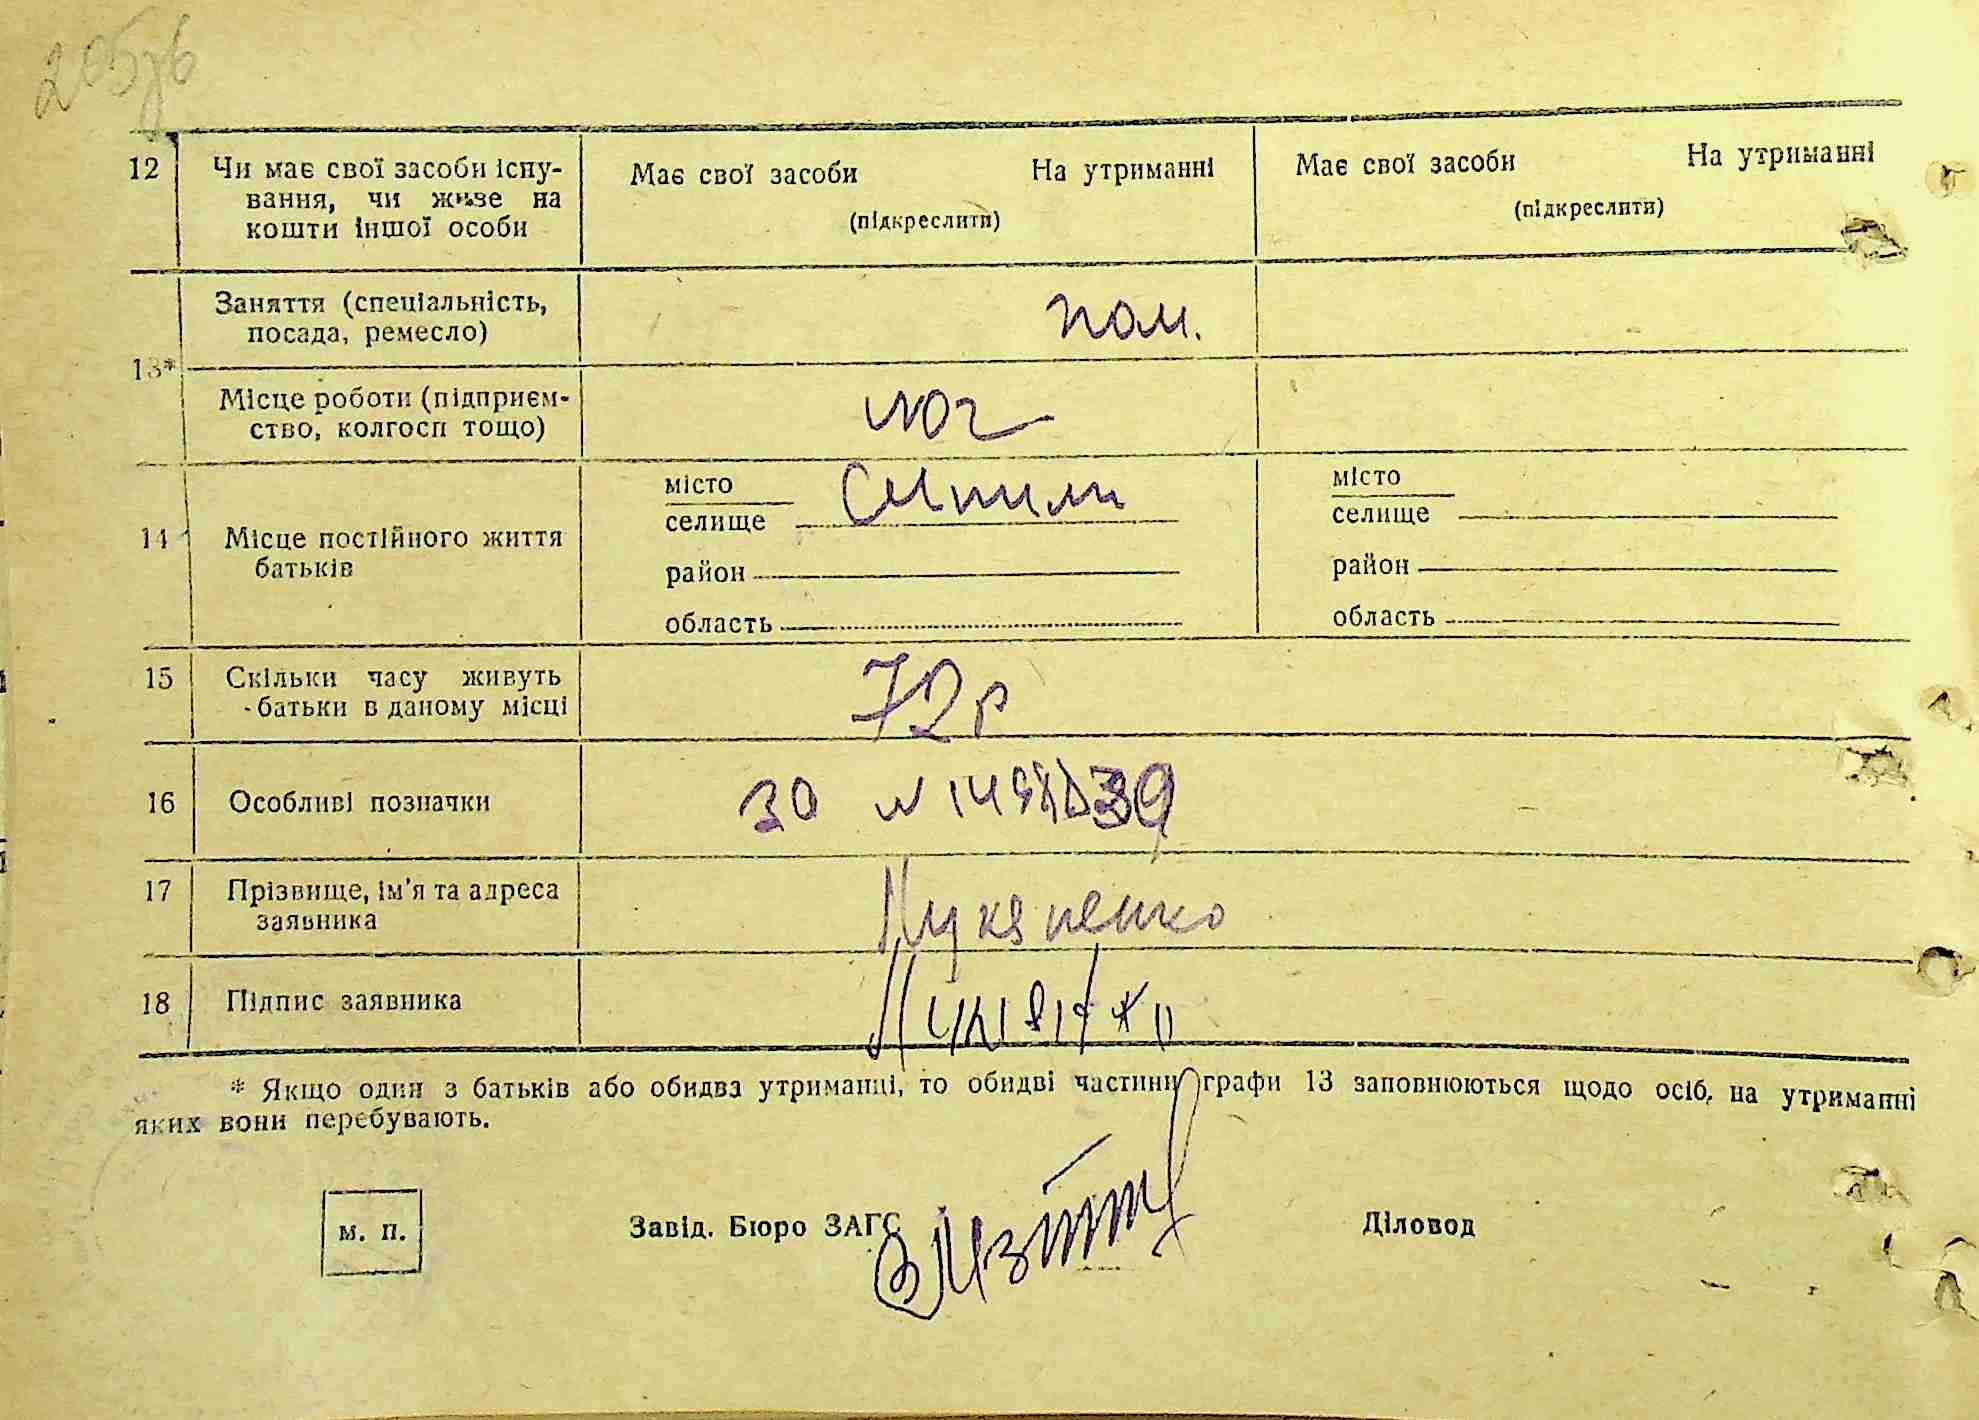 12 Чи має свої засоби існу-
вання, чи живе на
кошти іншої особи
Має свої засоби На утриманні
(підкреслити)
Має свої засоби На утриманні
(підкреслити)
13*
Заняття (спеціальність,
посада, ремесло)
пом.
Місце роботи (підприєм-
ство, колгосп тощо)
14 Місце постійного життя
батьків
місто
селище
район
область
місто
селище
район
область
15 Скільки часу живуть
батьки в даному місці
72р
16 Особливі позначки
17 Прізвище, ім'я та адреса
заявника
Лукяненко
18 Підпис заявника
* Якщо один з батьків або обидва утриманці, то обидві частини графи 13 заповнюються щодо осіб, на утриманні
яких вони перебувають.
м. п.
Завід. Бюро ЗАГС
Діловод